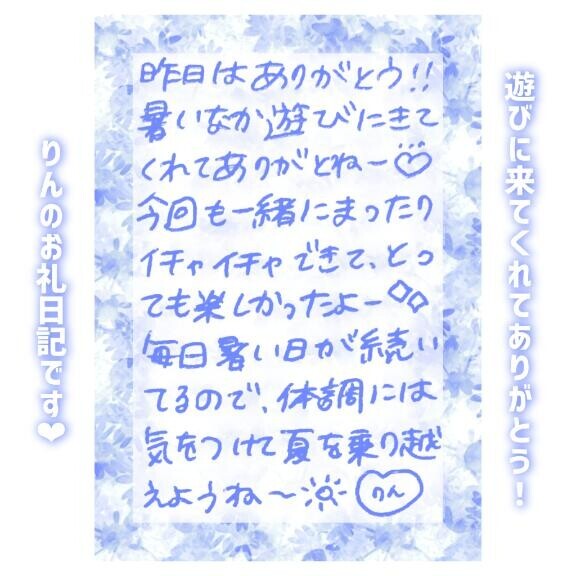 遊びに来てくれてありがとう!
昨日はありがとう!!
暑いなか遊びにきて
くれてありがとねー♡
今回も一緒にまったり
イチャイチャできて、とっ
ても楽しかったよー◇◇
毎日暑い日が続い
てるので、体調には
気をつけて夏を乗り越
えようね〜☀ りん
りんのお礼日記です❤